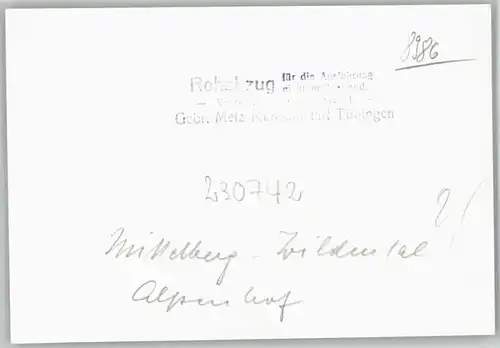 8986
Rohabzug für die Ausführung
Gebr. Metz Tübingen
230742
Mittelberg - Wildental
Alpenhof